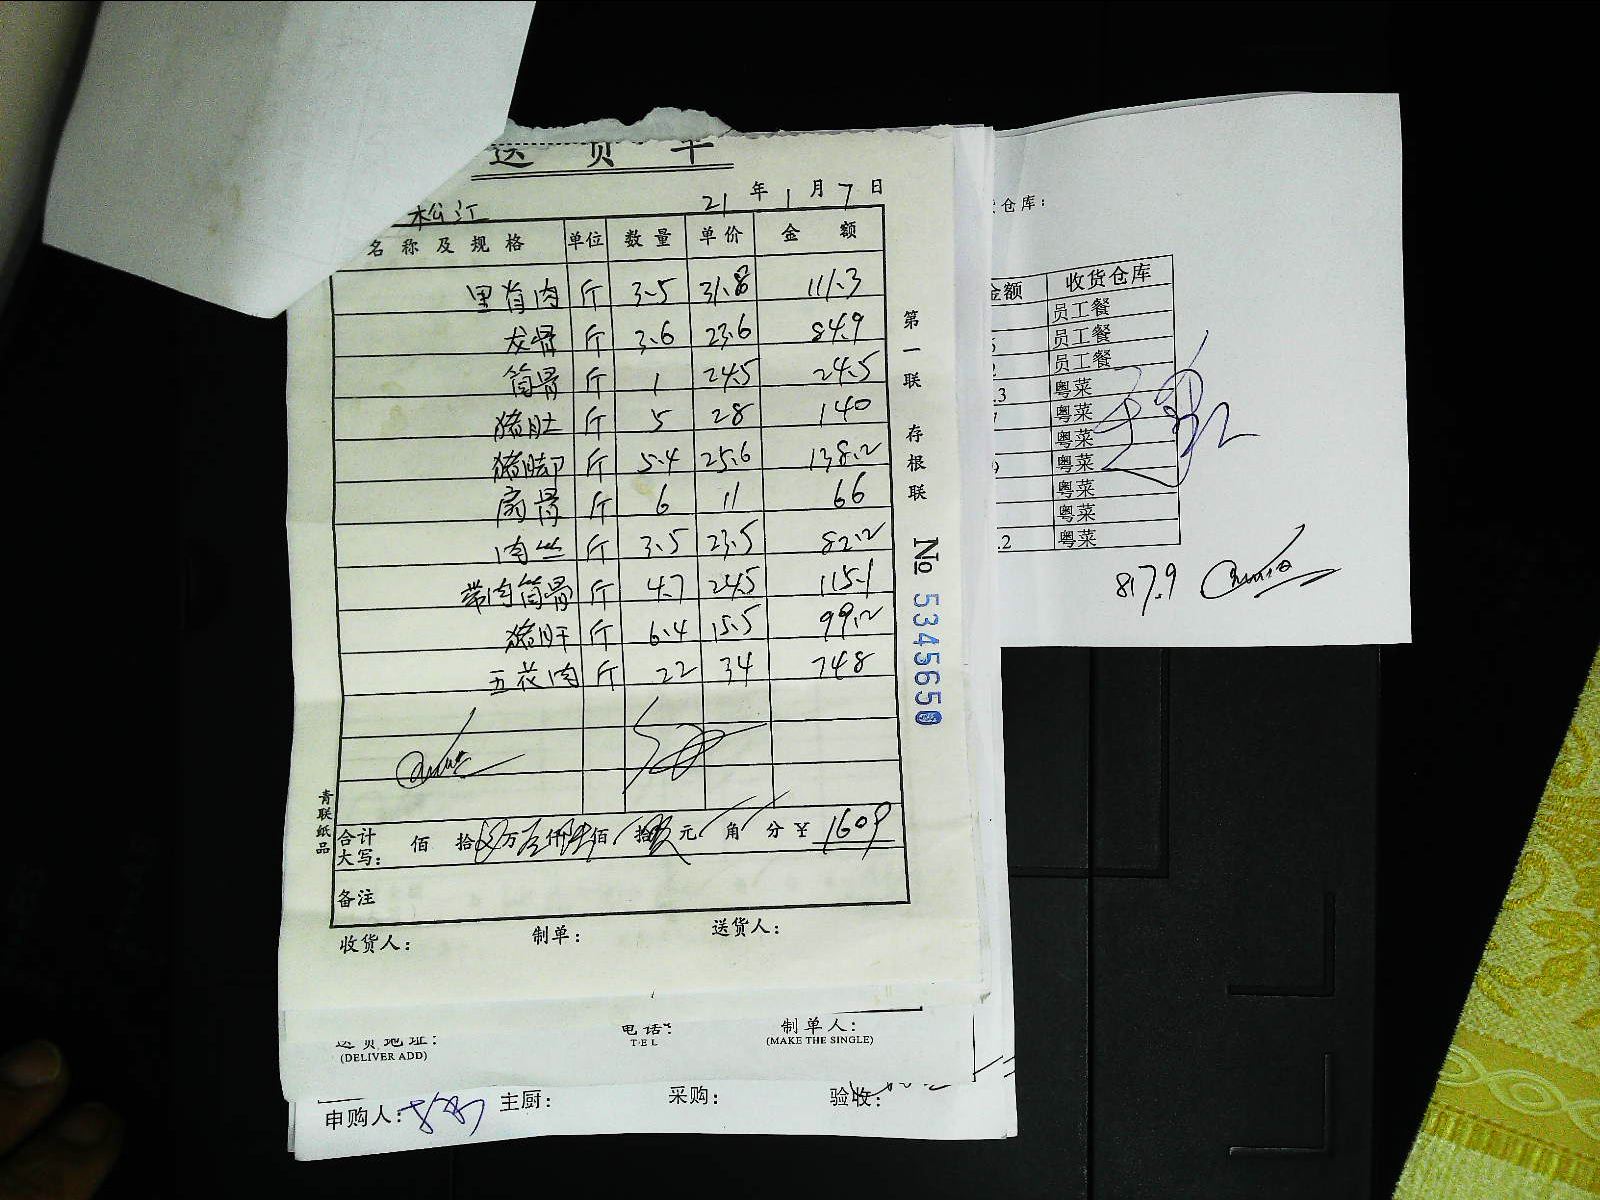 送货单
松江 21年1月7日
名称及规格 单位 数量 单价 金额
里脊肉 斤 3.5 31.8 111.3
龙骨 斤 3.6 23.6 84.9
筒骨 斤 1 24.5 24.5
猪肚 斤 5 28 140
猪脚 斤 5.4 25.6 138.2
扇骨 斤 6 11 66
肉丝 斤 3.5 23.5 82.2
带肉筒骨 斤 4.7 24.5 115.1
猪肝 斤 6.4 15.5 99.2
五花肉 斤 22 34 748
合计大写: 佰 拾 万 仟 佰 拾 元 角 分 ¥ 1609
备注
收货人: 制单: 送货人:
青联纸品
第一联 存根联 No 5345650
仓库:
金额 收货仓库
员工餐
员工餐
员工餐
.3 粤菜
7 粤菜
粤菜
9 粤菜
粤菜
粤菜
.2 粤菜
817.9
送货地址: 电话: 制单人:
(DELIVER ADD) TEL (MAKE THE SINGLE)
申购人: 主厨: 采购: 验收: